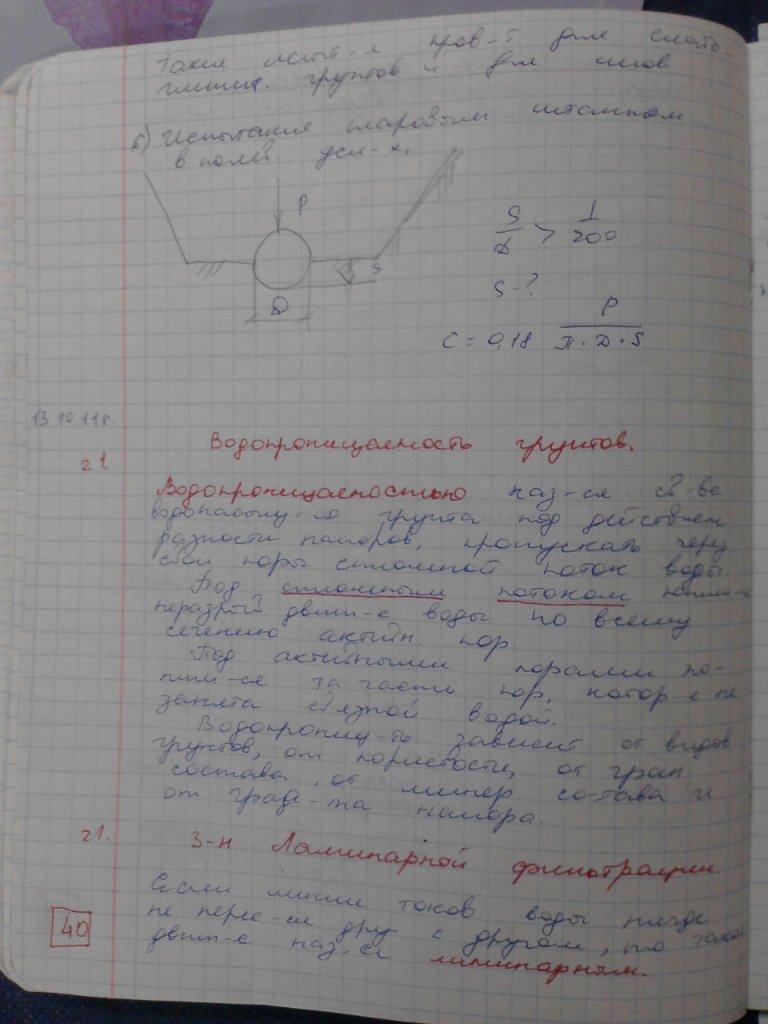 Такие испыт-я пров-т для слабо
глинист. грунтов и для илов
б) Испытание шаровым штампом
в полев. усл-х.
P
S
D
S/D > 1/200
S - ?
C = 0,18 P/П·D·S
13.10.11г.
Водопроницаемость грунтов.
21
Водопроницаемостью наз-ся св-во
водонасыщ-го грунта под действием
разности напоров, пропускать через
свои поры сплошной поток воды.
Под сплошным потоком
неразрыв. движ-е воды по всему
сечению активн. пор.
Под активными порами по-
ним-ся та часть пор, котор-я не
занята связной водой.
Водопрониц-ть зависит от видов
грунтов, от пористости, от гран
состава, от минер. со-тава и
от град-та напора.
21.
З-н Ламинарной фильтрации.
Если линии токов воды нигде
не перес-ся друг с другом, то такое
движ-е наз-ся ламинарным.
40